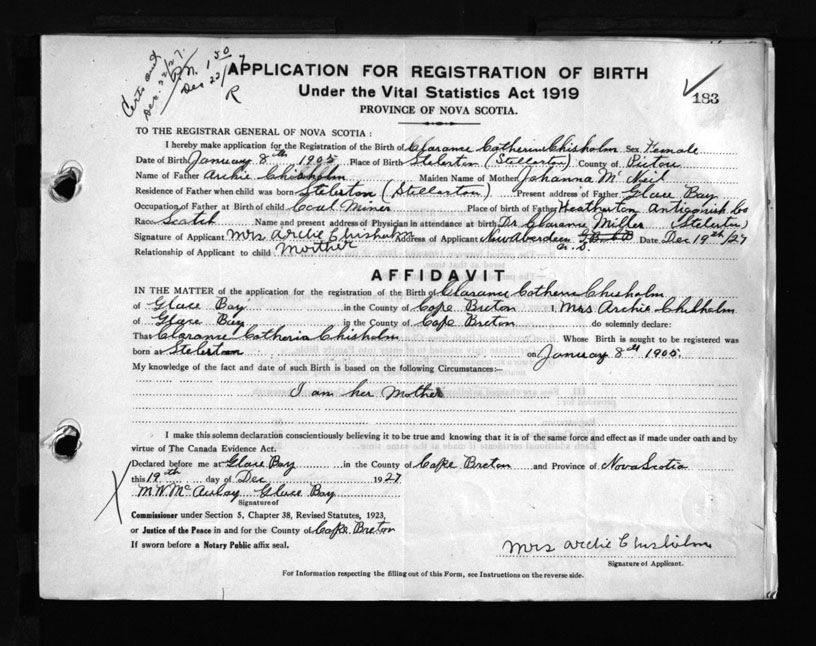 Certs sent
Dec. 22/27.
P.N. 1 50
Dec 22/27
R
APPLICATION FOR REGISTRATION OF BIRTH
Under the Vital Statistics Act 1919
PROVINCE OF NOVA SCOTIA.
183
TO THE REGISTRAR GENERAL OF NOVA SCOTIA:
I hereby make application for the Registration of the Birth of Claranne Catherine Chisholm Sex Female
Date of Birth January 8th 1905 Place of Birth Stelerton (Stellerton) County of Pictou
Name of Father Archie Chisholm Maiden Name of Mother Johanna Mc Neil
Residence of Father when child was born Stelerton (Stellerton) Present address of Father Glace Bay
Occupation of Father at Birth of child Coal Miner Place of birth of Father Heatherton Antigonish Co
Race Scotch Name and present address of Physician in attendance at birth Dr Claranne Miller (Stelerton)
Signature of Applicant Mrs Archie Chisholm Address of Applicant New Aberdeen Date Dec 19th/27
Relationship of Applicant to child Mother
AFFIDAVIT
IN THE MATTER of the application for the registration of the Birth of Clarance Catherine Chisholm
of Glace Bay in the County of Cape Breton I, Mrs Archie Chisholm
of Glace Bay in the County of Cape Breton do solemnly declare:
That Claranne Catheria Chisholm Whose Birth is sought to be registered was
born at Stelerton on January 8th 1905
My knowledge of the fact and date of such Birth is based on the following Circumstances:—
I am her Mother
I make this solemn declaration conscientiously believing it to be true and knowing that it is of the same force and effect as if made under oath and by
virtue of The Canada Evidence Act.
Declared before me at Glace Bay in the County of Cape Breton and Province of Nova Scotia
this 19th day of Dec 1927
M.W. McAulay Glace Bay
Signature of
Commissioner under Section 5, Chapter 38, Revised Statutes, 1923,
or Justice of the Peace in and for the County of Cape Breton
If sworn before a Notary Public affix seal.
Mrs Archie Chisholm
Signature of Applicant.
For Information respecting the filling out of this Form, see Instructions on the reverse side.